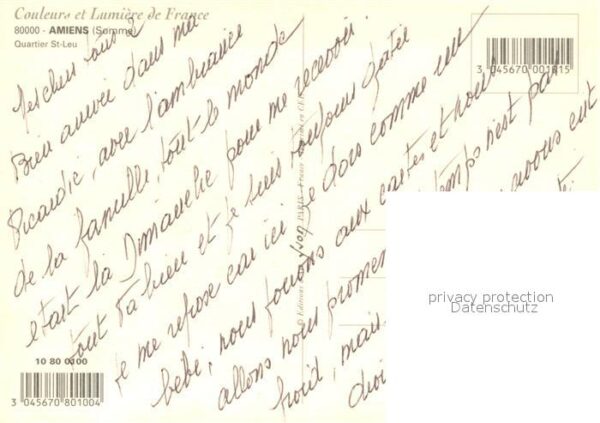 Couleurs et Lumière de France
80000 - AMIENS (Somme)
Quartier St-Leu
3 045670 001015
Mes chers amis
Bien arrivée dans ma
Picardie, avec l'ambiance
de la famille, tout le monde
etait là Dimanche pour me recevoir.
tout va bien et je suis toujours gatée
je me repose car ici je dors comme un
bébé, nous jouons aux cartes et nous
allons nous promener temps n'est pas
froid, mais avons eut
10 80 0100
3 045670 801004
privacy protection
Datenschutz